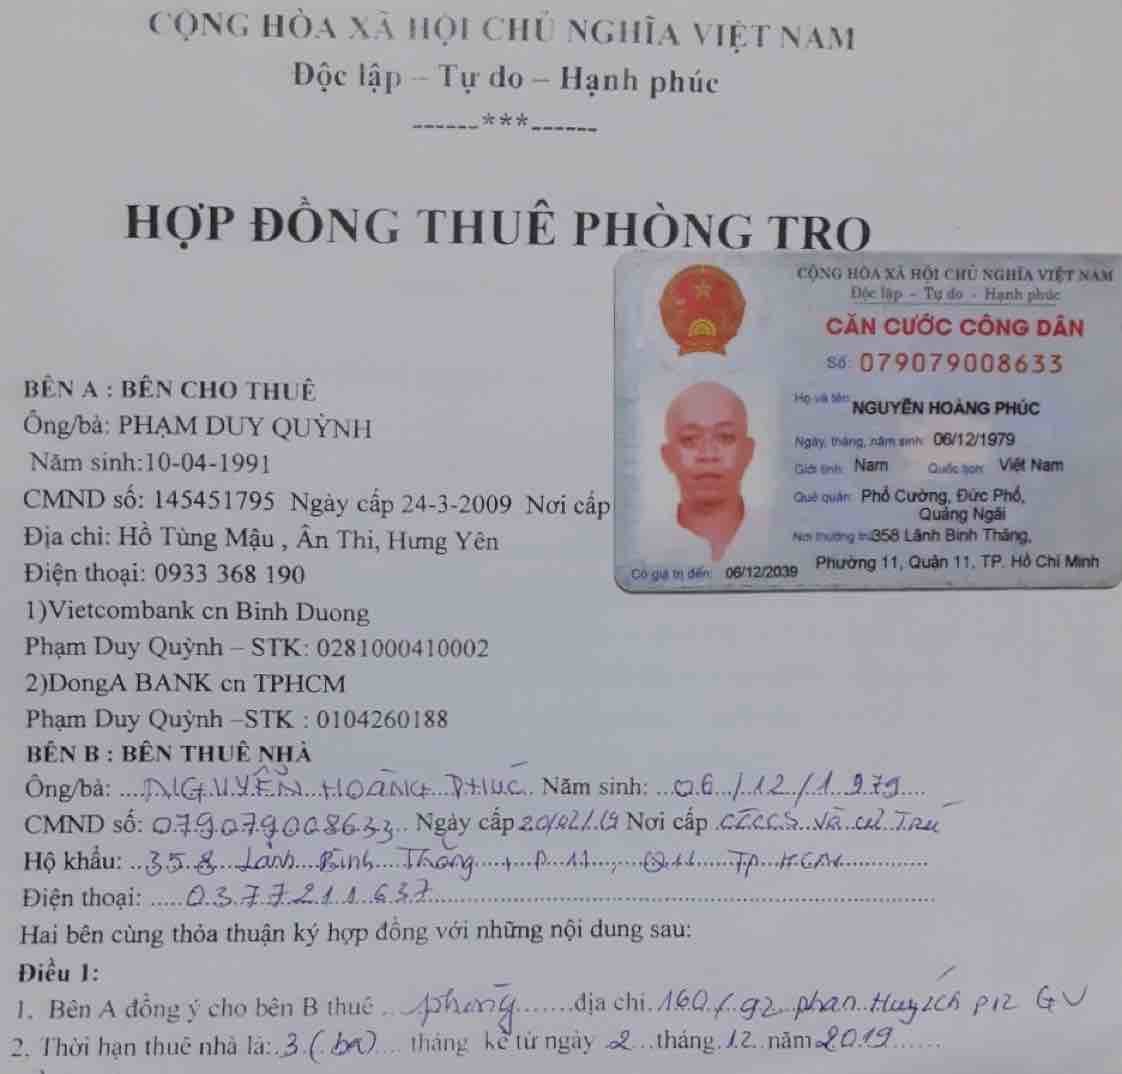 CỘNG HÒA XÃ HỘI CHỦ NGHĨA VIỆT NAM
Độc lập – Tự do – Hạnh phúc
------***------
HỢP ĐỒNG THUÊ PHÒNG TRỌ
CỘNG HÒA XÃ HỘI CHỦ NGHĨA VIỆT NAM
Độc lập - Tự do - Hạnh phúc
CĂN CƯỚC CÔNG DÂN
Số: 079079008633
Họ và tên: NGUYỄN HOÀNG PHÚC
Ngày, tháng, năm sinh: 06/12/1979
Giới tính: Nam Quốc tịch: Việt Nam
Quê quán: Phổ Cường, Đức Phổ,
Quảng Ngãi
Nơi thường trú: 358 Lãnh Binh Thăng,
Phường 11, Quận 11, TP. Hồ Chí Minh
Có giá trị đến: 06/12/2039
BÊN A : BÊN CHO THUÊ
Ông/bà: PHẠM DUY QUỲNH
Năm sinh:10-04-1991
CMND số: 145451795 Ngày cấp 24-3-2009 Nơi cấp
Địa chỉ: Hồ Tùng Mậu , Ân Thi, Hưng Yên
Điện thoại: 0933 368 190
1)Vietcombank cn Binh Duong
Phạm Duy Quỳnh – STK: 0281000410002
2)DongA BANK cn TPHCM
Phạm Duy Quỳnh –STK : 0104260188
BÊN B : BÊN THUÊ NHÀ
Ông/bà: NGUYỄN HOÀNG PHÚC Năm sinh: 06/12/1979
CMND số: 079079008633 Ngày cấp Nơi cấp
Hộ khẩu: 358 Lãnh Binh Thăng, P 11, Q11 TP HCM
Điện thoại: 0377211637
Hai bên cùng thỏa thuận ký hợp đồng với những nội dung sau:
Điều 1:
1. Bên A đồng ý cho bên B thuê phòng địa chỉ 160/92 phan Huy ích p12 GV
2. Thời hạn thuê nhà là: 3 (ba) tháng kể từ ngày 2 tháng 12 năm 2019